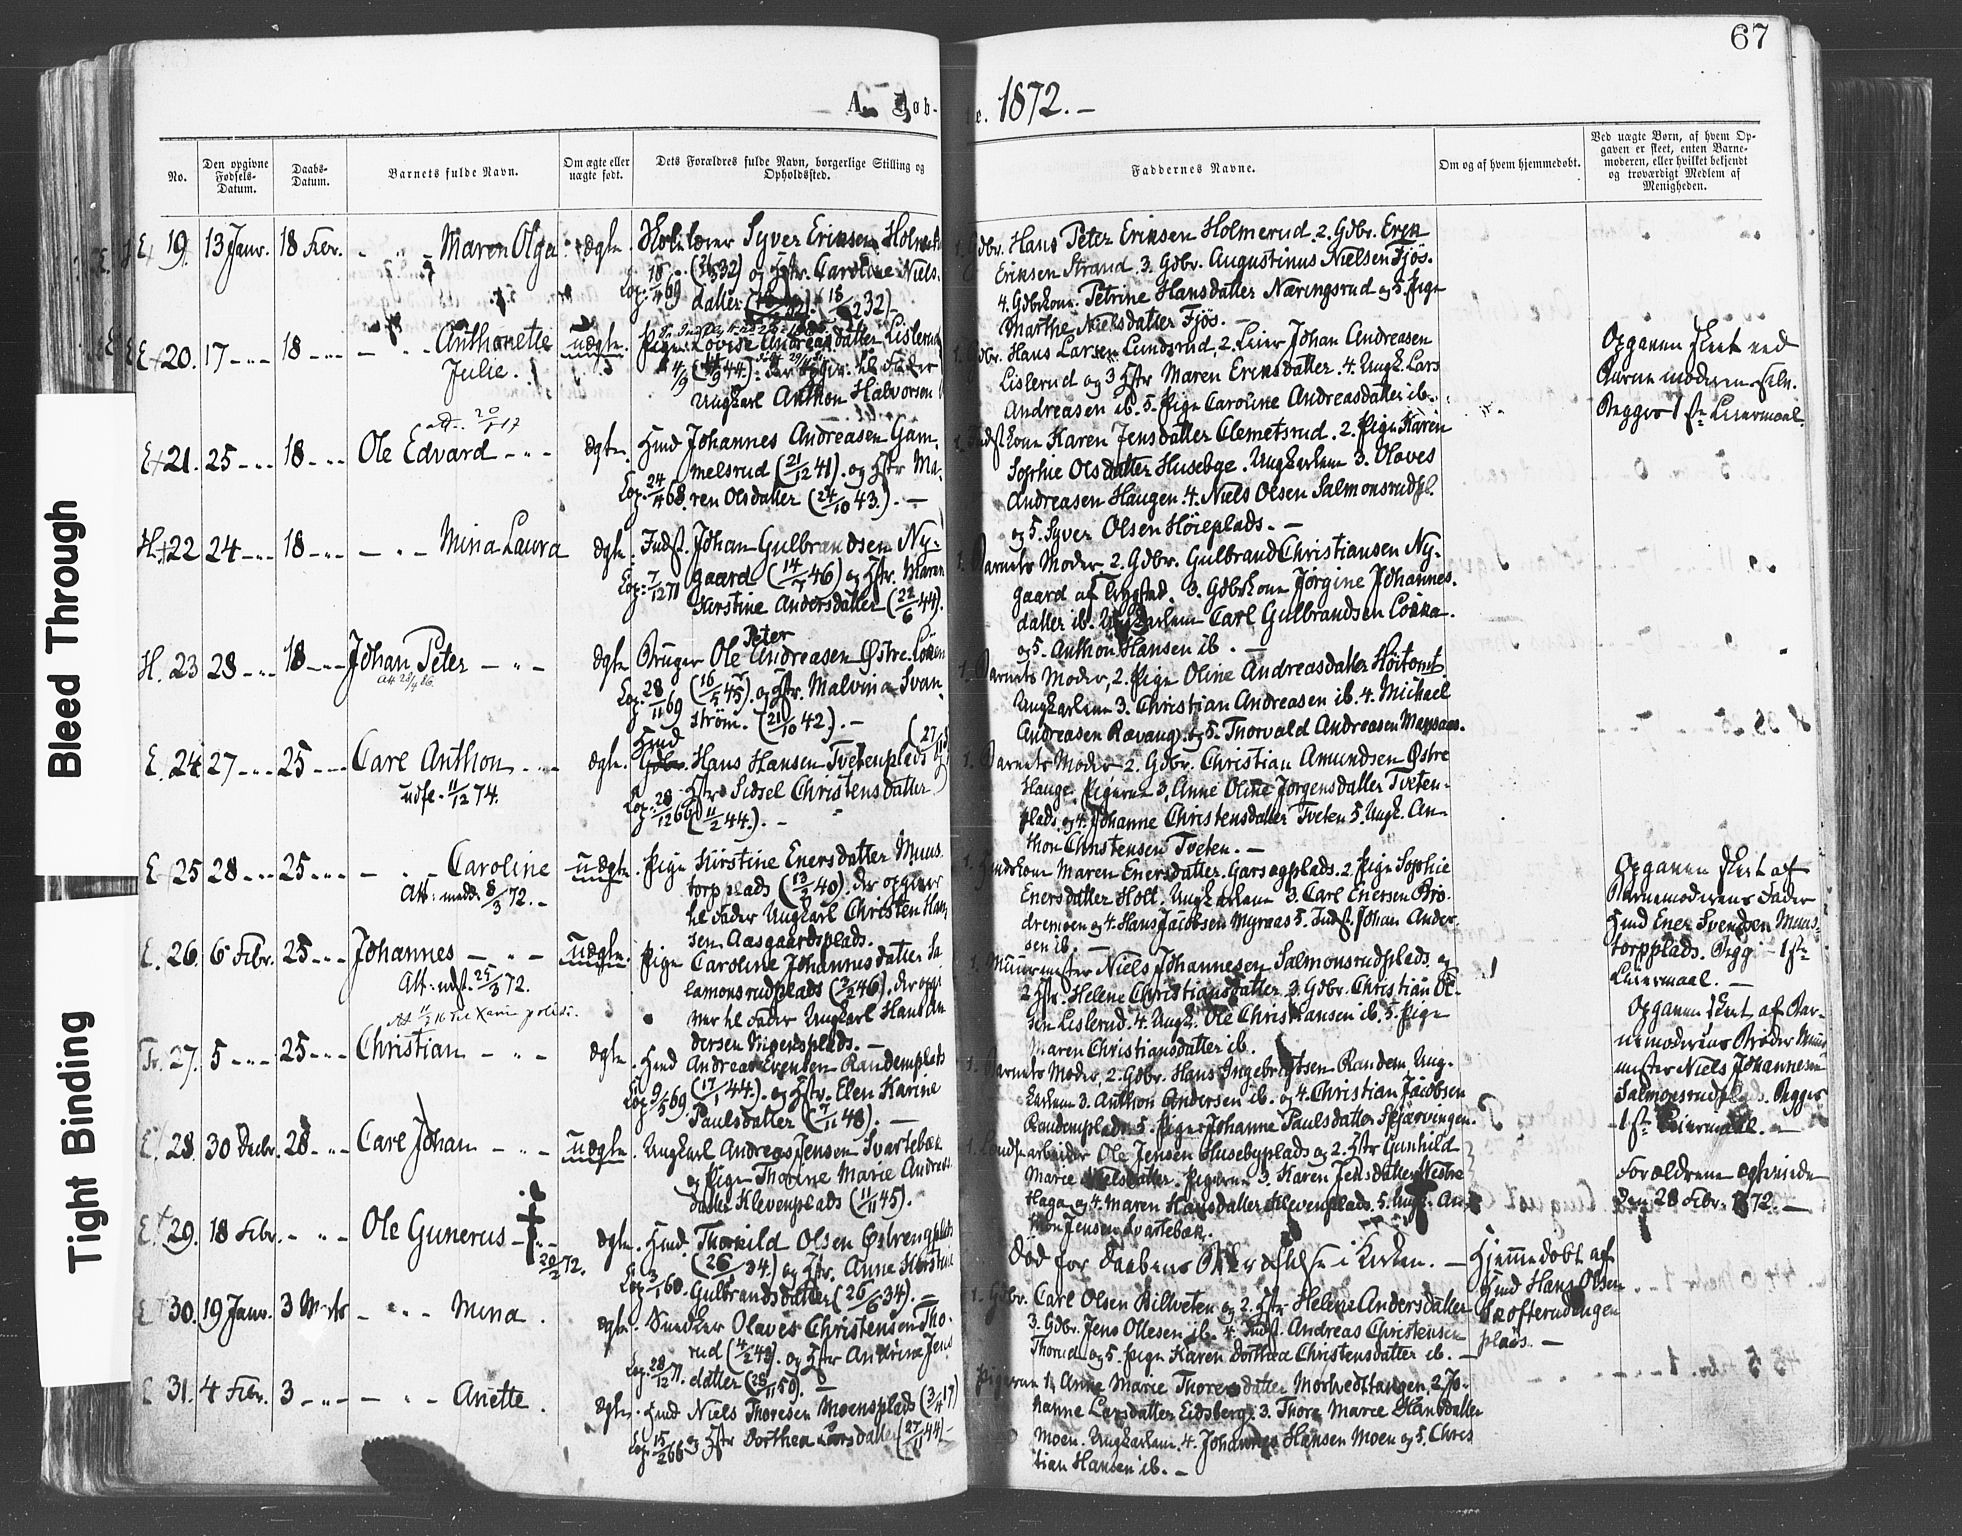 67
A. Døb-
e. 1872. —
No.
Den opgivne Fødsels-Datum.
Daabs-Datum.
Barnets fulde Navn.
Om ægte eller uægte født.
Dets Forældres fulde Navn, borgerlige Stilling og Opholdssted.
Faddernes Navne.
Om og af hvem hjemmedøbt.
Ved uægte Børn, af hvem Opgaven er skeet, enten Barnemoderen, eller hvilket bekjendt og troværdigt Medlem af Menigheden.
Bleed Through
Tight Binding
19. 13 Janr. 18 Febr. Maren Olga ægte
Syver Eriksen
og Hstr. Caroline Niels-
datter
1. Gdbr. Hans Peter Eriksen Holmerud. 2. Gdbr. Eryk
Eriksen Strand. 3. Gdbr. Augustinus Nielsen Fjøs.
4. Gdbrkone Petrine Hansdatter Næringsrud og 5. Pige
Marthe Nielsdatter Fjøs. —
20. 17 18 Anthonette uægte.
Julie.
Pige Lovise Andreasdatter Lislerud
til Fader
Ungkarl Anthon Halvorsen
1. Gdbr. Hans Larsen Lundsrud, 2. Leier Johan Andreasen
Lislerud og 3 Hstr Maren Eriksdatter. 4. Ungk. Lars
Andreasen ib. 5. Pige Caroline Andreasdatter ib.
Opgaven skeet ved
Barnemoderen selv.
Begges 1ste Leiermaal.
21. 25 18 Ole Edvard ægte.
Hmd Johannes Andreasen Gam-
melsrud (21/12 41). og Hstr Ma-
Cop. 24/4 68. ren Olsdatter (24/10 43). —
1. Indstkone Karen Jensdatter Clemetsrud. 2. Pige Karen
Sophie Olsdatter Husebye. Ungkarlene 3. Olaves
Andreasen Haugen. 4. Niels Olsen Salmonsrudpl.
og 5. Syver Olsen Høieplads. —
22 24 18 Mina Laura ægte.
Indst. Johan Gulbrandsen Ny-
gaard (14/ 46) og Hstr. Maren
Kirstine Andersdatter (22/6 44).
Cop. 7/12 71
1. Barnets Moder. 2. Gdbr. Gulbrand Christiansen Ny-
gaard af Trygstad. 3. Gdbrkone Jørgine Johannes-
datter ib. Ungkarlene Carl Gulbrandsen
og 5. Anthon Hansen ib. —
H. 23 28 18 Johan Peter ægte
Bruger Ole Peter Andreasen Østre
Cop. 28/11 69 (16/ 45). og Hstr. Malvina Svan-
strøm. (21/10 42). —
1. Barnets Moder, 2. Pige Oline Andreasdatter Høitomt.
Ungkarlene 3. Christian Andreasen ib. 4. Michael
Andreasen og 5. Thorvald Andreasen
E. 24 27 25 Carl Anthon ægte.
udfl. 11/12 74.
Hmd
Hans Hansen Tvetenplads
Hstr. Sidsel Christensdatter
Cop. 28/12 66 (11/2 44). —
1. Barnets Moder 2. Gdbr. Christian Amundsen Østre
Hauge. Pigerne 3. Anne Oline Jørgensdatter Tveten-
plads og 4. Johanne Christensdatter Tveten 5. Ungk. An-
thon Christensen Tveten. —
E. 25 28 25 Caroline uægte.
Att: medd: 8/3 72. —
Pige Kirstine Enersdatter Muus-
torpplads (13/ 40). der opgiver
til Fader Ungkarl Christen Han-
sen Aasgaardsplads.
1. Hmdskone Maren Enersdatter. 2. Pige Sophie
Enersdatter Holt. Ungkarlene 3. Carl Enersen Bro-
dremoen og 4. Hans Jacobsen Myraas 5. Indst. Johan Ander-
sen ib. —
Opgaven skeet af
Barnemoderens Fader
Hmd Ener Svendsen Muus-
torpplads. Begg — 1ste
Leiermaal. —
E. 26. 6 Febr. 25 Johannes uægte.
Att: udst. 25/3 72.
Pige Caroline Johannesdatter Sa-
lamonsrudplads (3/2 46). der opgi-
ver til Fader Ungkarl Hans An-
dersen
1 Muurmester Niels Johannesen Salmonsrudplads og
2 Hstr. Helene Christiansdatter. 3. Gdbr. Christian Ol-
sen Lislerud. 4. Ungk. Ole Christiansen ib. 5. Pige
Maren Christiansdatter ib.
Opgaven skeet af Bar-
nemoderens Broder Muur-
mester Niels Johannesen
Salmonsrudplads. Begges
1ste Leiermaal. —
Fr. 27. 5 25 Christian ægte.
Hmd Andreas Evensen Randemplads
(17/1 44). og Hstr. Elen Karine
Paulsdatter
1. Barnets Moder, 2. Gdbr. Hans Ingebrigtsen Randem. Ung-
karlene 3. Anthon Andersen ib. og 4. Christian Jacobsen
Randemplads. 5. Pige Johanne Paulsdatter Skjærvingen.
E. 28. 30 Decbr. 28 Carl Johan uægte.
Ungkarl Andreas Jensen Svartebæk
og Pige Thorine Marie Andreas-
datter Klevenplads (11/11 45).
1. Landsarbeider Ole Jensen Husebyplads og 2. Hstr Gunhild
Marie Nielsdatter. Pigerne 3. Karen Jensdatter Vestre
Haga og 4. Maren Hansdatter Klevenplads. 5. Ungk. An-
thon Jensen Svartebæk.
Forældrene egteviede
den 28 Febr. 1872. —
29. 18 Febr. Ole Gunerus † 20/2 72. ægte.
Hmd Thorkild Olsen
og Hstr. Anne Kirstine
Gulbrandsdatter (26/6 34). —
Død før Daabens Bekræftelse i Kirken. —
Hjemmedøbt af
Hmd Hans Olsen
plads. —
30. 19 Janr. 3 Marts Mina. ægte.
Snedker Olaves Christensen Tho-
rud (4/2 49). og Hstr Andrine Jens-
datter
Cop. 28/12 71.
1. Gdbr. Carl Olsen Billveten og 2. Hstr Helene Andersdatter
3. Gdbr. Jens Ollesen ib. 4. Indst. Andreas Christensen
Thorud og 5. Pige Karen Dorthea Christensdatter ib. —
31. 4 Febr. 3 Anette. ægte.
Hmd Niels Thoresen Moensplads (3/4 17)
Cop. 15/2 66 og Hstr Dorthea Larsdatter (27/11 44) —
Pigerne 1. Anne Marie Thoresdatter Morkvedhaugen, 2. Jo-
hanne Larsdatter Eidsberg. 3. Thora Marie Hansdatter
Moen. Ungkarlene. 4. Johannes Hansen Moen og 5. Chris-
tian Hansen ib. —